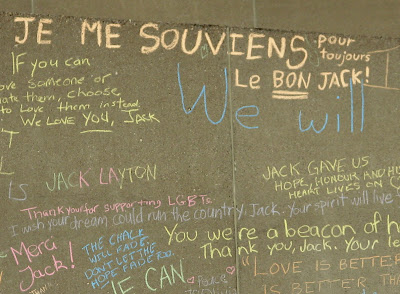 JE ME SOUVIENS pour
toujours
Le BON JACK!
If you can
someone or
them, choose
to Love them instead.
We Love you, Jack
We will
IS JACK LAYTON
JACK GAVE US
HOPE, HONOUR AND
HEART LIVES ON
Thank you for supporting LGBTs
I wish your dream could run the country, Jack. Your spirit will live
You were a beacon of
Thank you, Jack. Your
Merci
Jack!
THE CHALK
WILL FADE
DON'T LET THE
HOPE FADE TOO.
WE CAN
Peace
"LOVE IS BETTER
IS BETTER